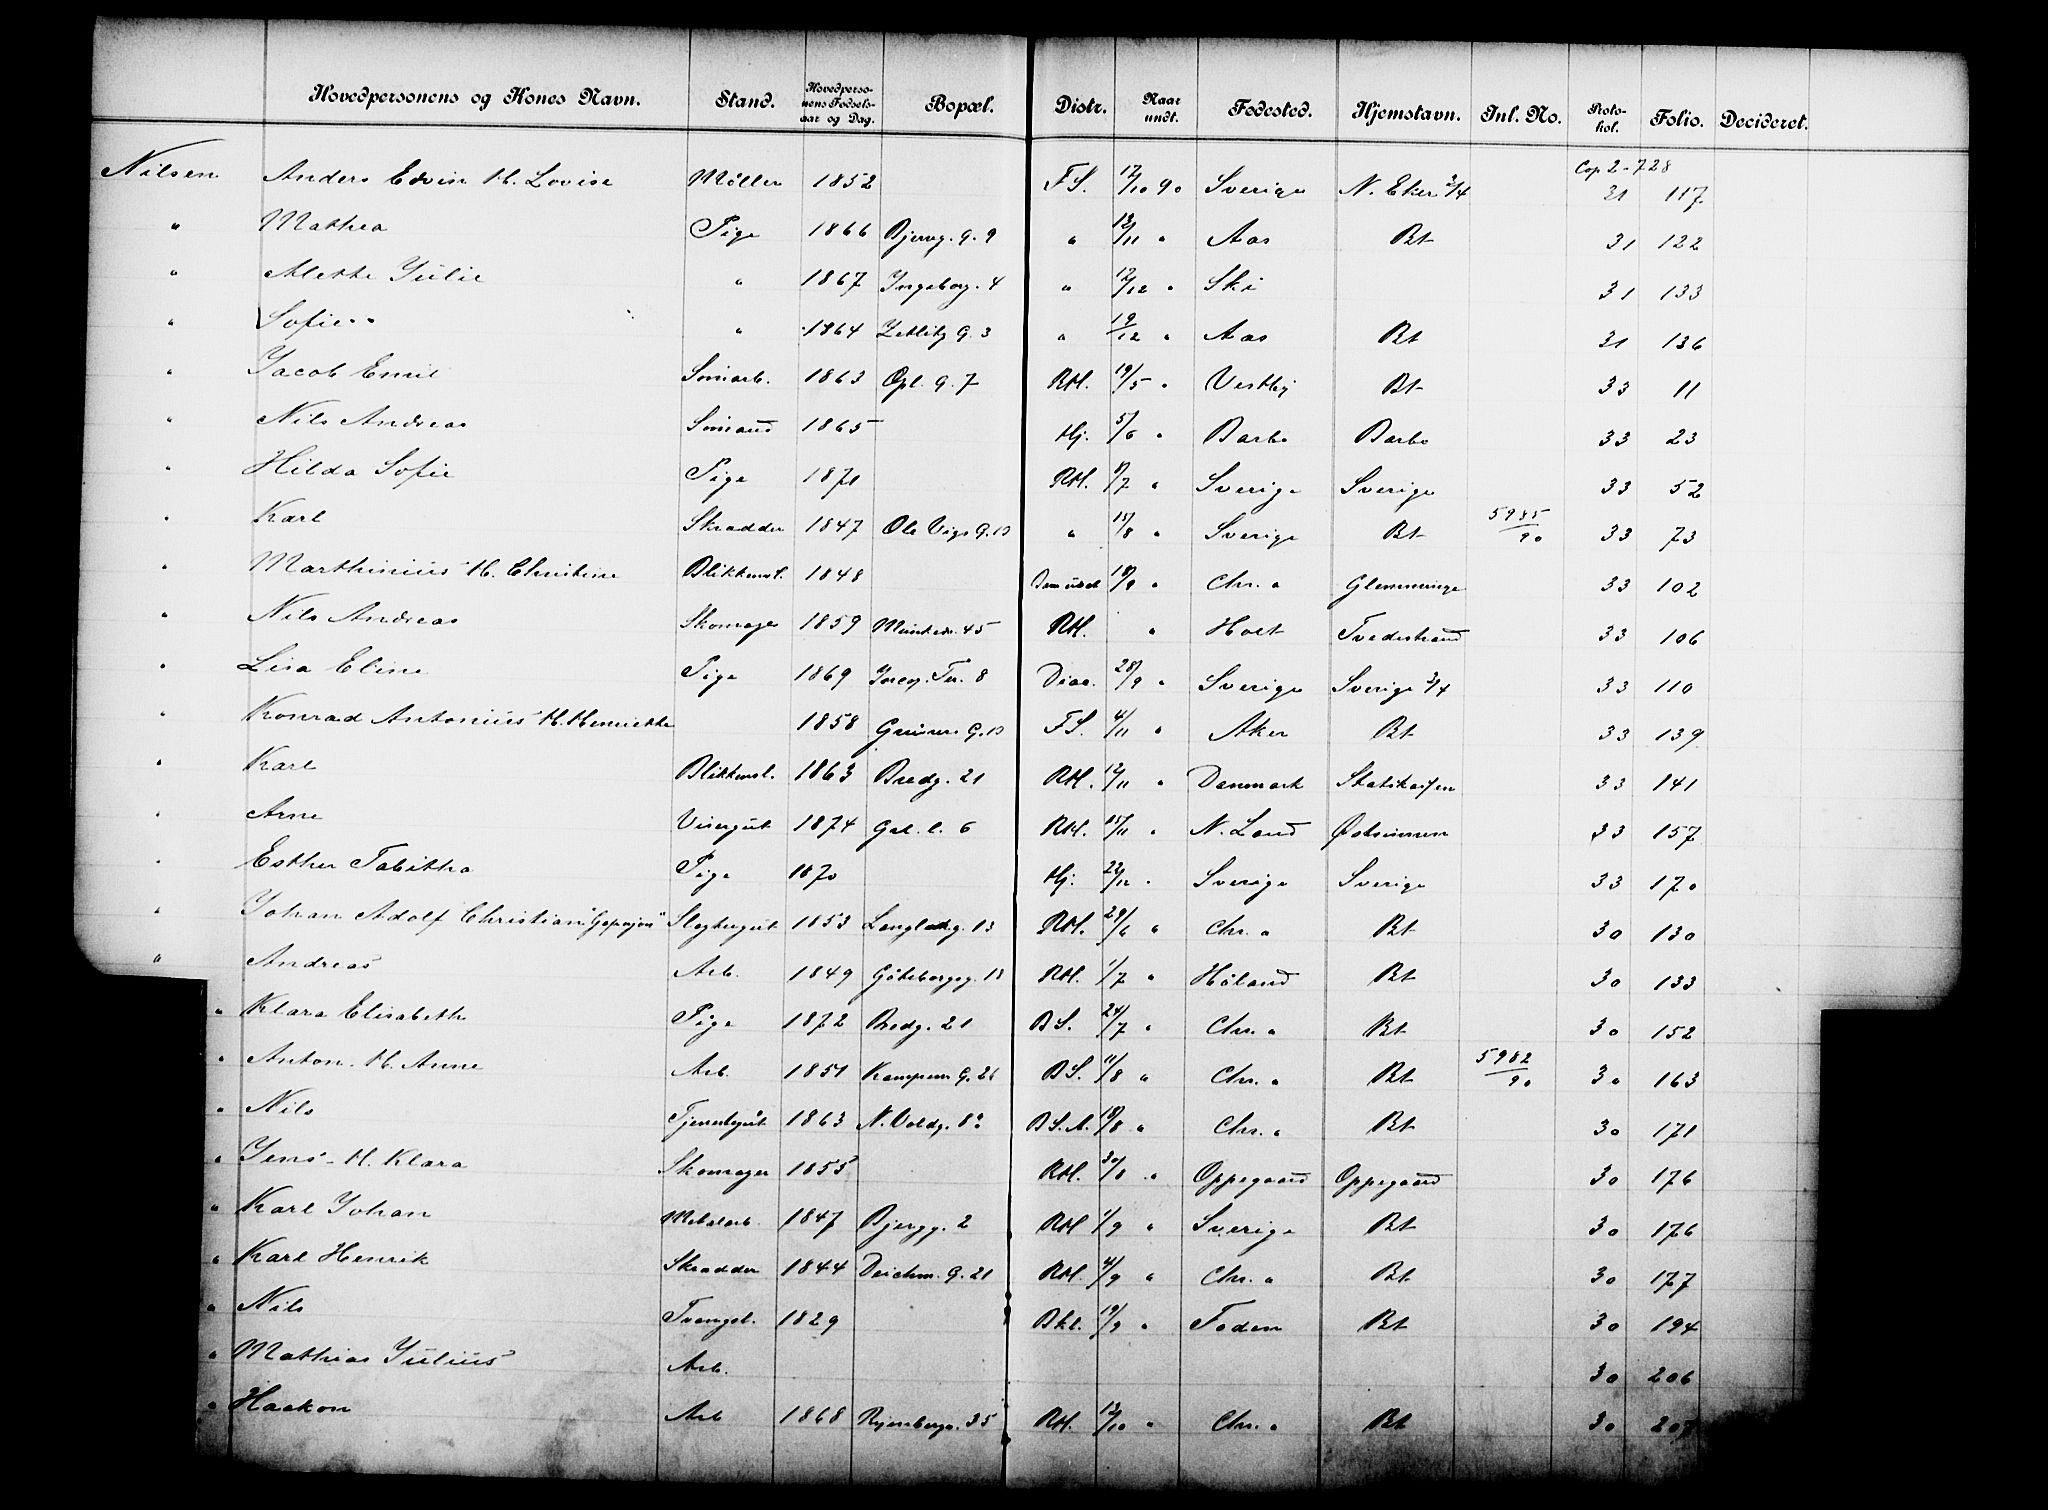 Hovedpersonens og Kones Navn. Stand. Hovedperso-nens Fødsels-aar og Dag. Bopæl. Distr. Naar undt. Fødested. Hjemstavn. Inl. No. Proto-kol. Folio. Decideret.
Cop 2-728
Nilsen Anders Edvin H. Lovise Møller 1852 F.S. 17/10 90 Sverige N. Eker 3/4 31 117
" Mathea Pige 1866 Bjerg. g. 9 " 12/11 " Aas Bt 31 122
" Alette Julie " 1867 Ingeborg. 4 " 12/12 " Ski 31 133
" Sofie " 1864 Zetlitz g. 3 " 19/12 " Aas Bt 31 136
" Jacob Emil 1863 Opl. g. 7 RH. 19/5 " Vestby Bt 33 11
" Nils Andreas Sømand 1865 Hj. 5/6 " Barbo Barbo 33 23
" Hilda Sofie Pige 1871 RH. /7 " Sverige Sverige 33 52
" Karl Skrædder 1847 Ole Vigs G. 10 " 15/8 " Sverige Bt 5985/90 33 73
" Marthinius H. Christine Blikkensl. 1848 18/9 " Chr.a Glemminge 33 102
" Nils Andreas Skomager 1859 Munkedr. 45 RH. " Holt Tvedestrand 33 106
" Lisa Eline Pige 1869 Ter. 8 Diac. 28/9 " Sverige Sverige 3/4 33 110
" Konrad Antonius H. Henriette 1858 Grüners G. 10 F.S. 4/11 " Aker Bt 33 139
" Karl Blikkensl. 1863 Bredg. 21 RH. 12/11 " Danmark Statskassen 33 141
" Arne Visergut 1874 6 RH. 15/11 " N. Land Østsinnen 33 157
" Esther Tabitha Pige 1870 Hj. 22/12 " Sverige Sverige 33 170
" Johan Adolf Christian Slagtergut 1853 13 RH. 29/6 " Chr.a Bt 30 130
" Andreas Arb. 1849 Göteborgg. 18 RH. 1/7 " Høland Bt 30 133
" Klara Elisabeth Pige 1872 Bredg. 21 B.S. 24/7 " Chr.a Bt 30 152
" Anton. H. Anne Arb. 1851 Kampens G. 26 B.S. 11/8 " Chr.a Bt 5982/90 30 163
" Nils Tjenestegut 1863 N. Voldg. 8 B.S.A. 18/8 " Chr.a Bt 30 171
" Jens - H. Klara Skomager 1855 RH. 30/8 " Oppegaard Oppegaard 30 176
" Karl Johan Metalarb. 1847 Bjergg. 2 RH 1/9 " Sverige Bt 30 176
" Karl Henrik Skrædder 1844 Deichm. G. 21 RH. 4/9 " Chr.a Bt 30 177
" Nils Tvangsl. 1829 Bkl. 19/9 " Bt 30 194
" Mathias Julius Arb. 30 206
" Haakon Arb 1868 35 RH. 13/10 " Chr.a Bt 30 207